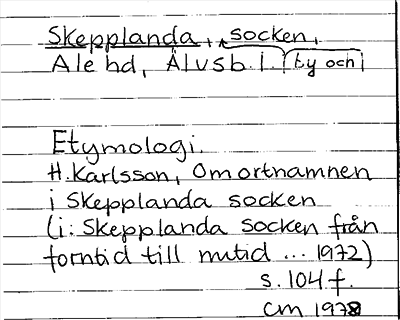 Skepplanda, socken,
Ale hd, Älvsb.l. (by och)
Etymologi.
H. Karlsson, Om ortnamnen
i Skepplanda socken
(i: Skepplanda socken från
forntid till nutid ... 1972)
s. 104 f.
CM 1978